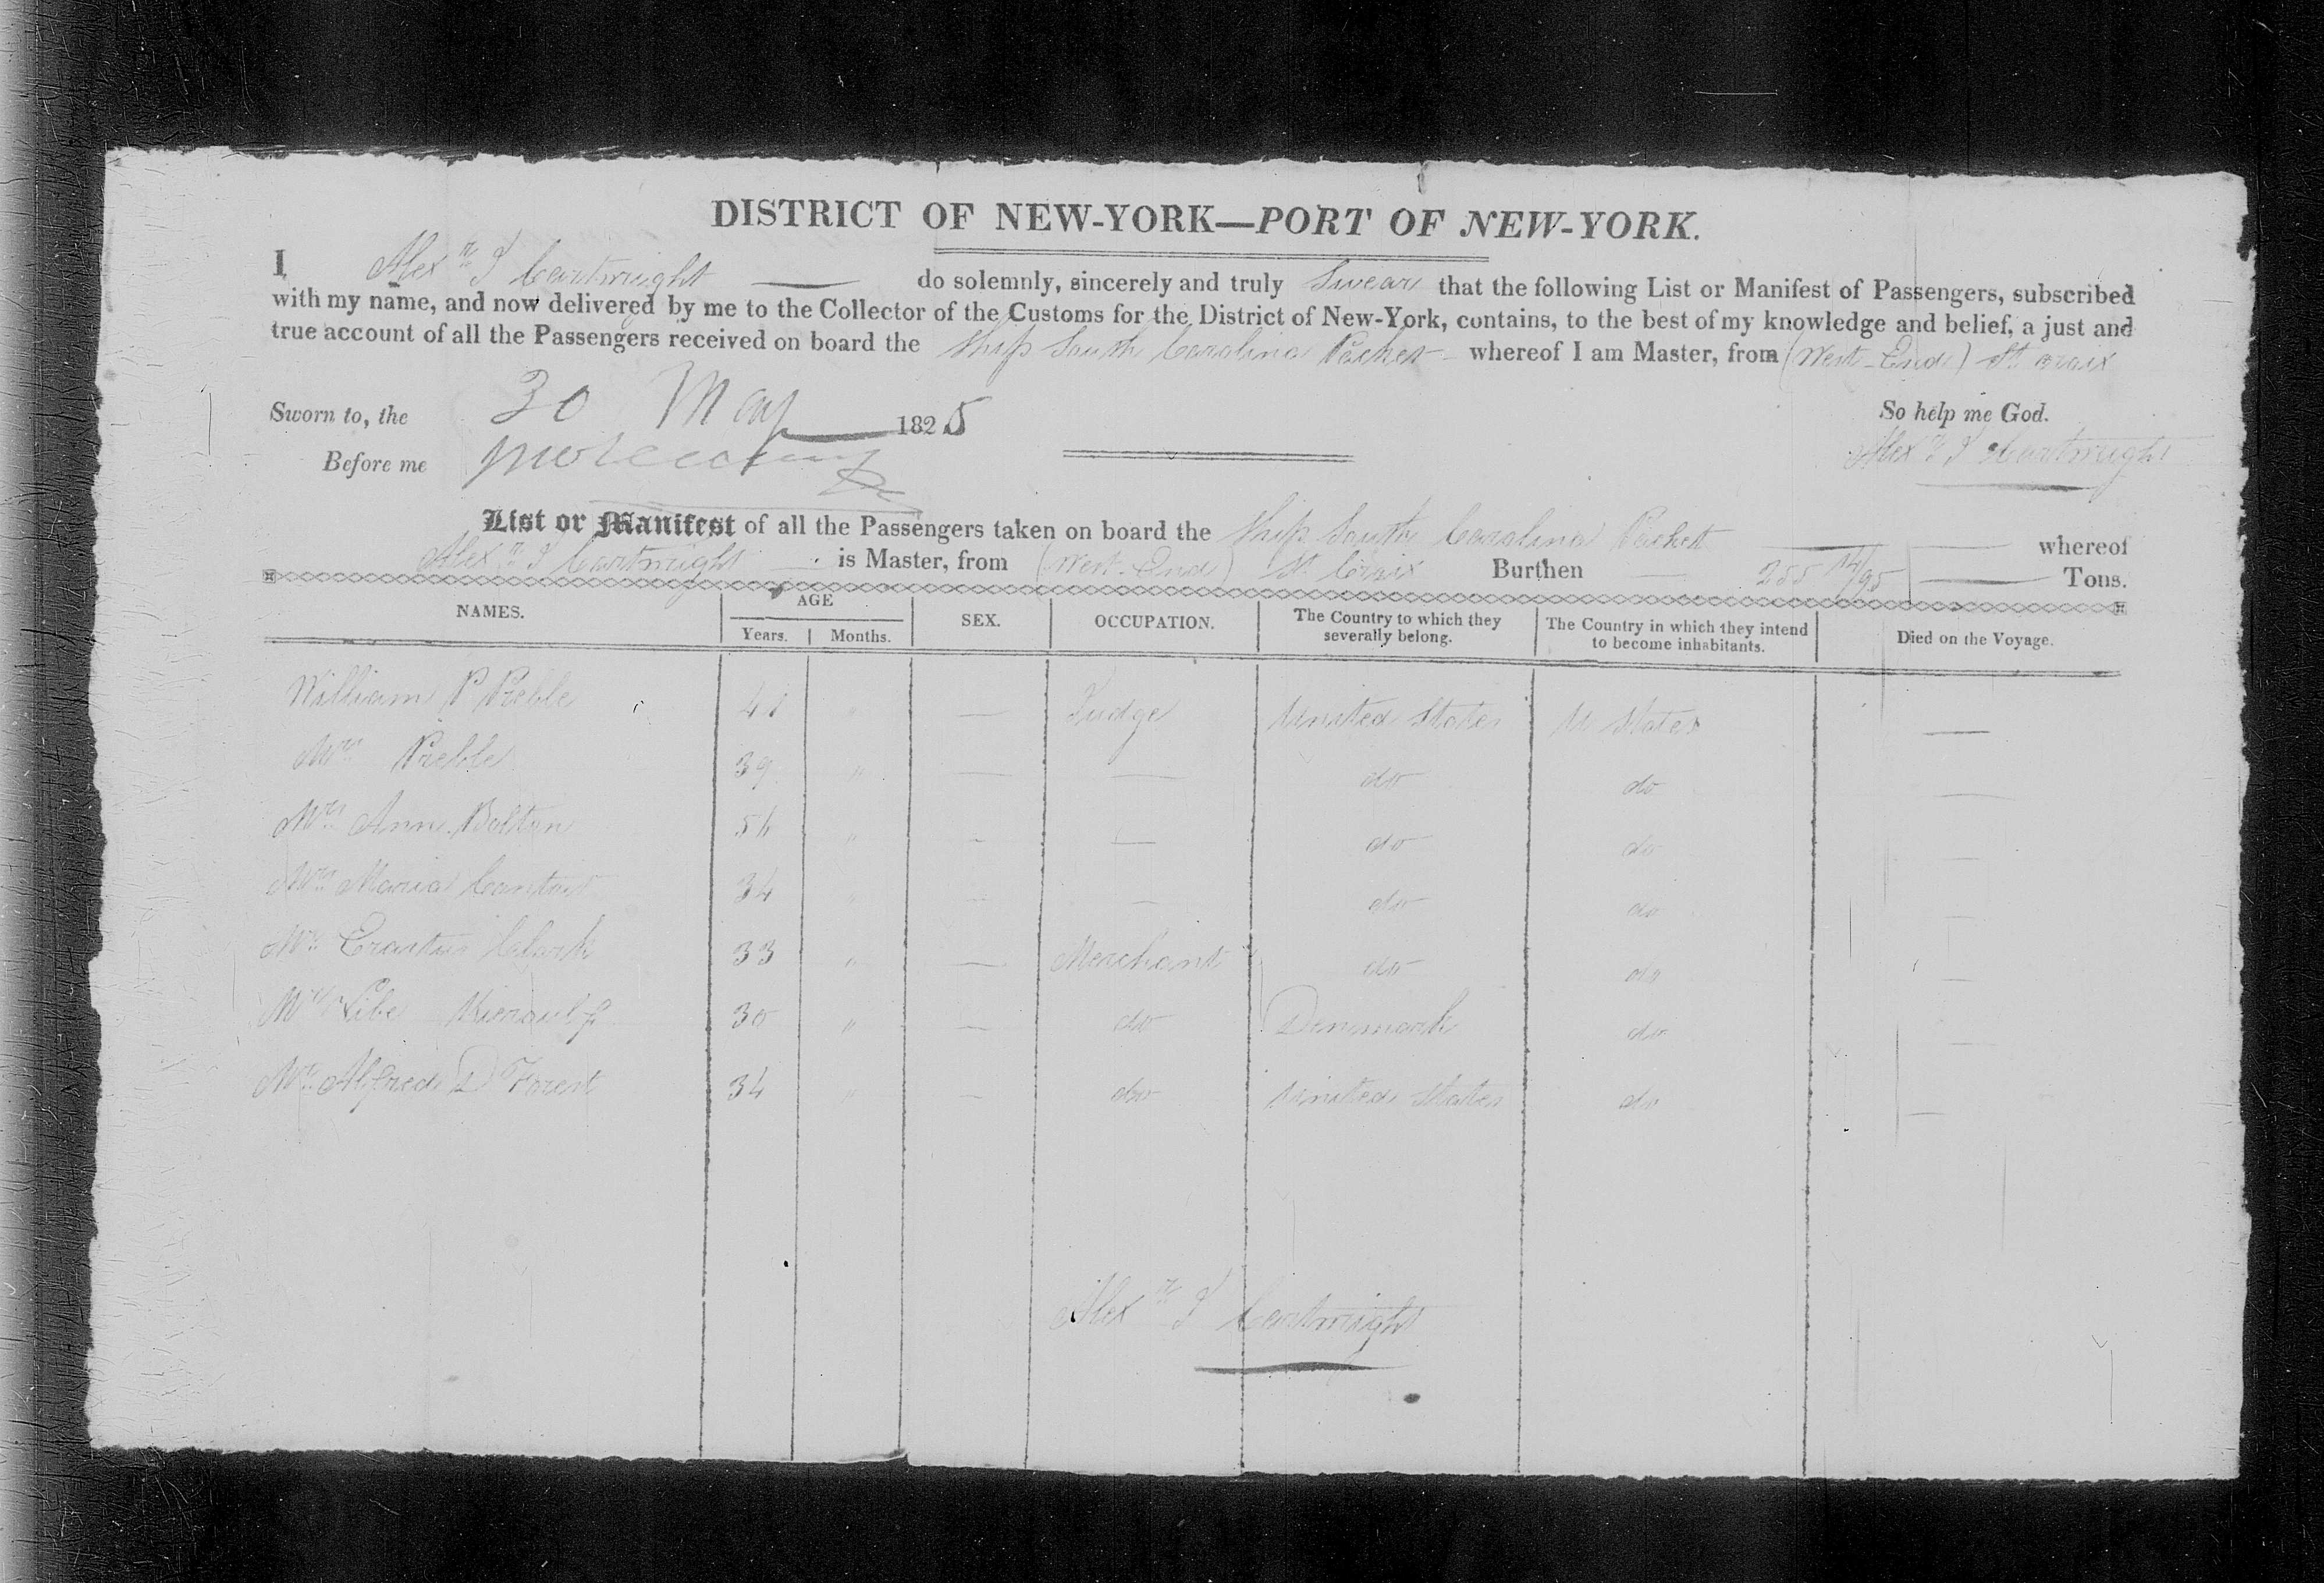 DISTRICT OF NEW-YORK—PORT OF NEW-YORK.
I Alexr I Cartwright do solemnly, sincerely and truly Swear that the following List or Manifest of Passengers, subscribed
with my name, and now delivered by me to the Collector of the Customs for the District of New-York, contains, to the best of my knowledge and belief, a just and
true account of all the Passengers received on board the Ship South Carolina Packet whereof I am Master, from (West-End) St Croix
Sworn to, the 30 May 1825 So help me God.
Before me Alexr I Cartwright
List or Manifest of all the Passengers taken on board the Ship South Carolina Packet whereof
Alexr I Cartwright is Master, from (West-End) St Croix Burthen 255 14/95 Tons.
NAMES. AGE Years. Months. SEX. OCCUPATION. The Country to which they severally belong. The Country in which they intend to become inhabitants. Died on the Voyage.
William P Preble 41 " — Judge United States U States —
Mrs Preble 39 " — — do do —
Mrs Anne Bolton " - — do do —
Mrs Maria 34 " - — do do —
Mr Erastus Clark 33 " — Merchant do do —
Mr 30 " — do Denmark do —
Mr Alfred D Forest 34 " — do United States do —
Alexr I Cartwright